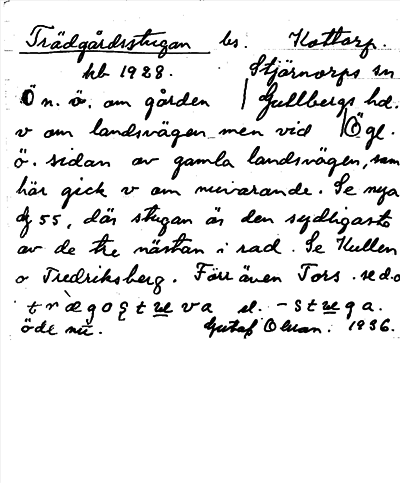 Trädgårdsstugan ls. Kottorp.
hb 1928. Stjärnorps sn
Ö n. ö. om gården Gullbergs hd.
v om landsvägen men vid Ögl.
ö. sidan av gamla landsvägen, som
här gick v om nuvarande. Se nya
dg 55, där stugan är den sydligaste
av de tre nästan i rad. Se Kullen
o Fredriksberg. Förr även Tors. se d.o
öde nu. Gustaf Olson. 1936.